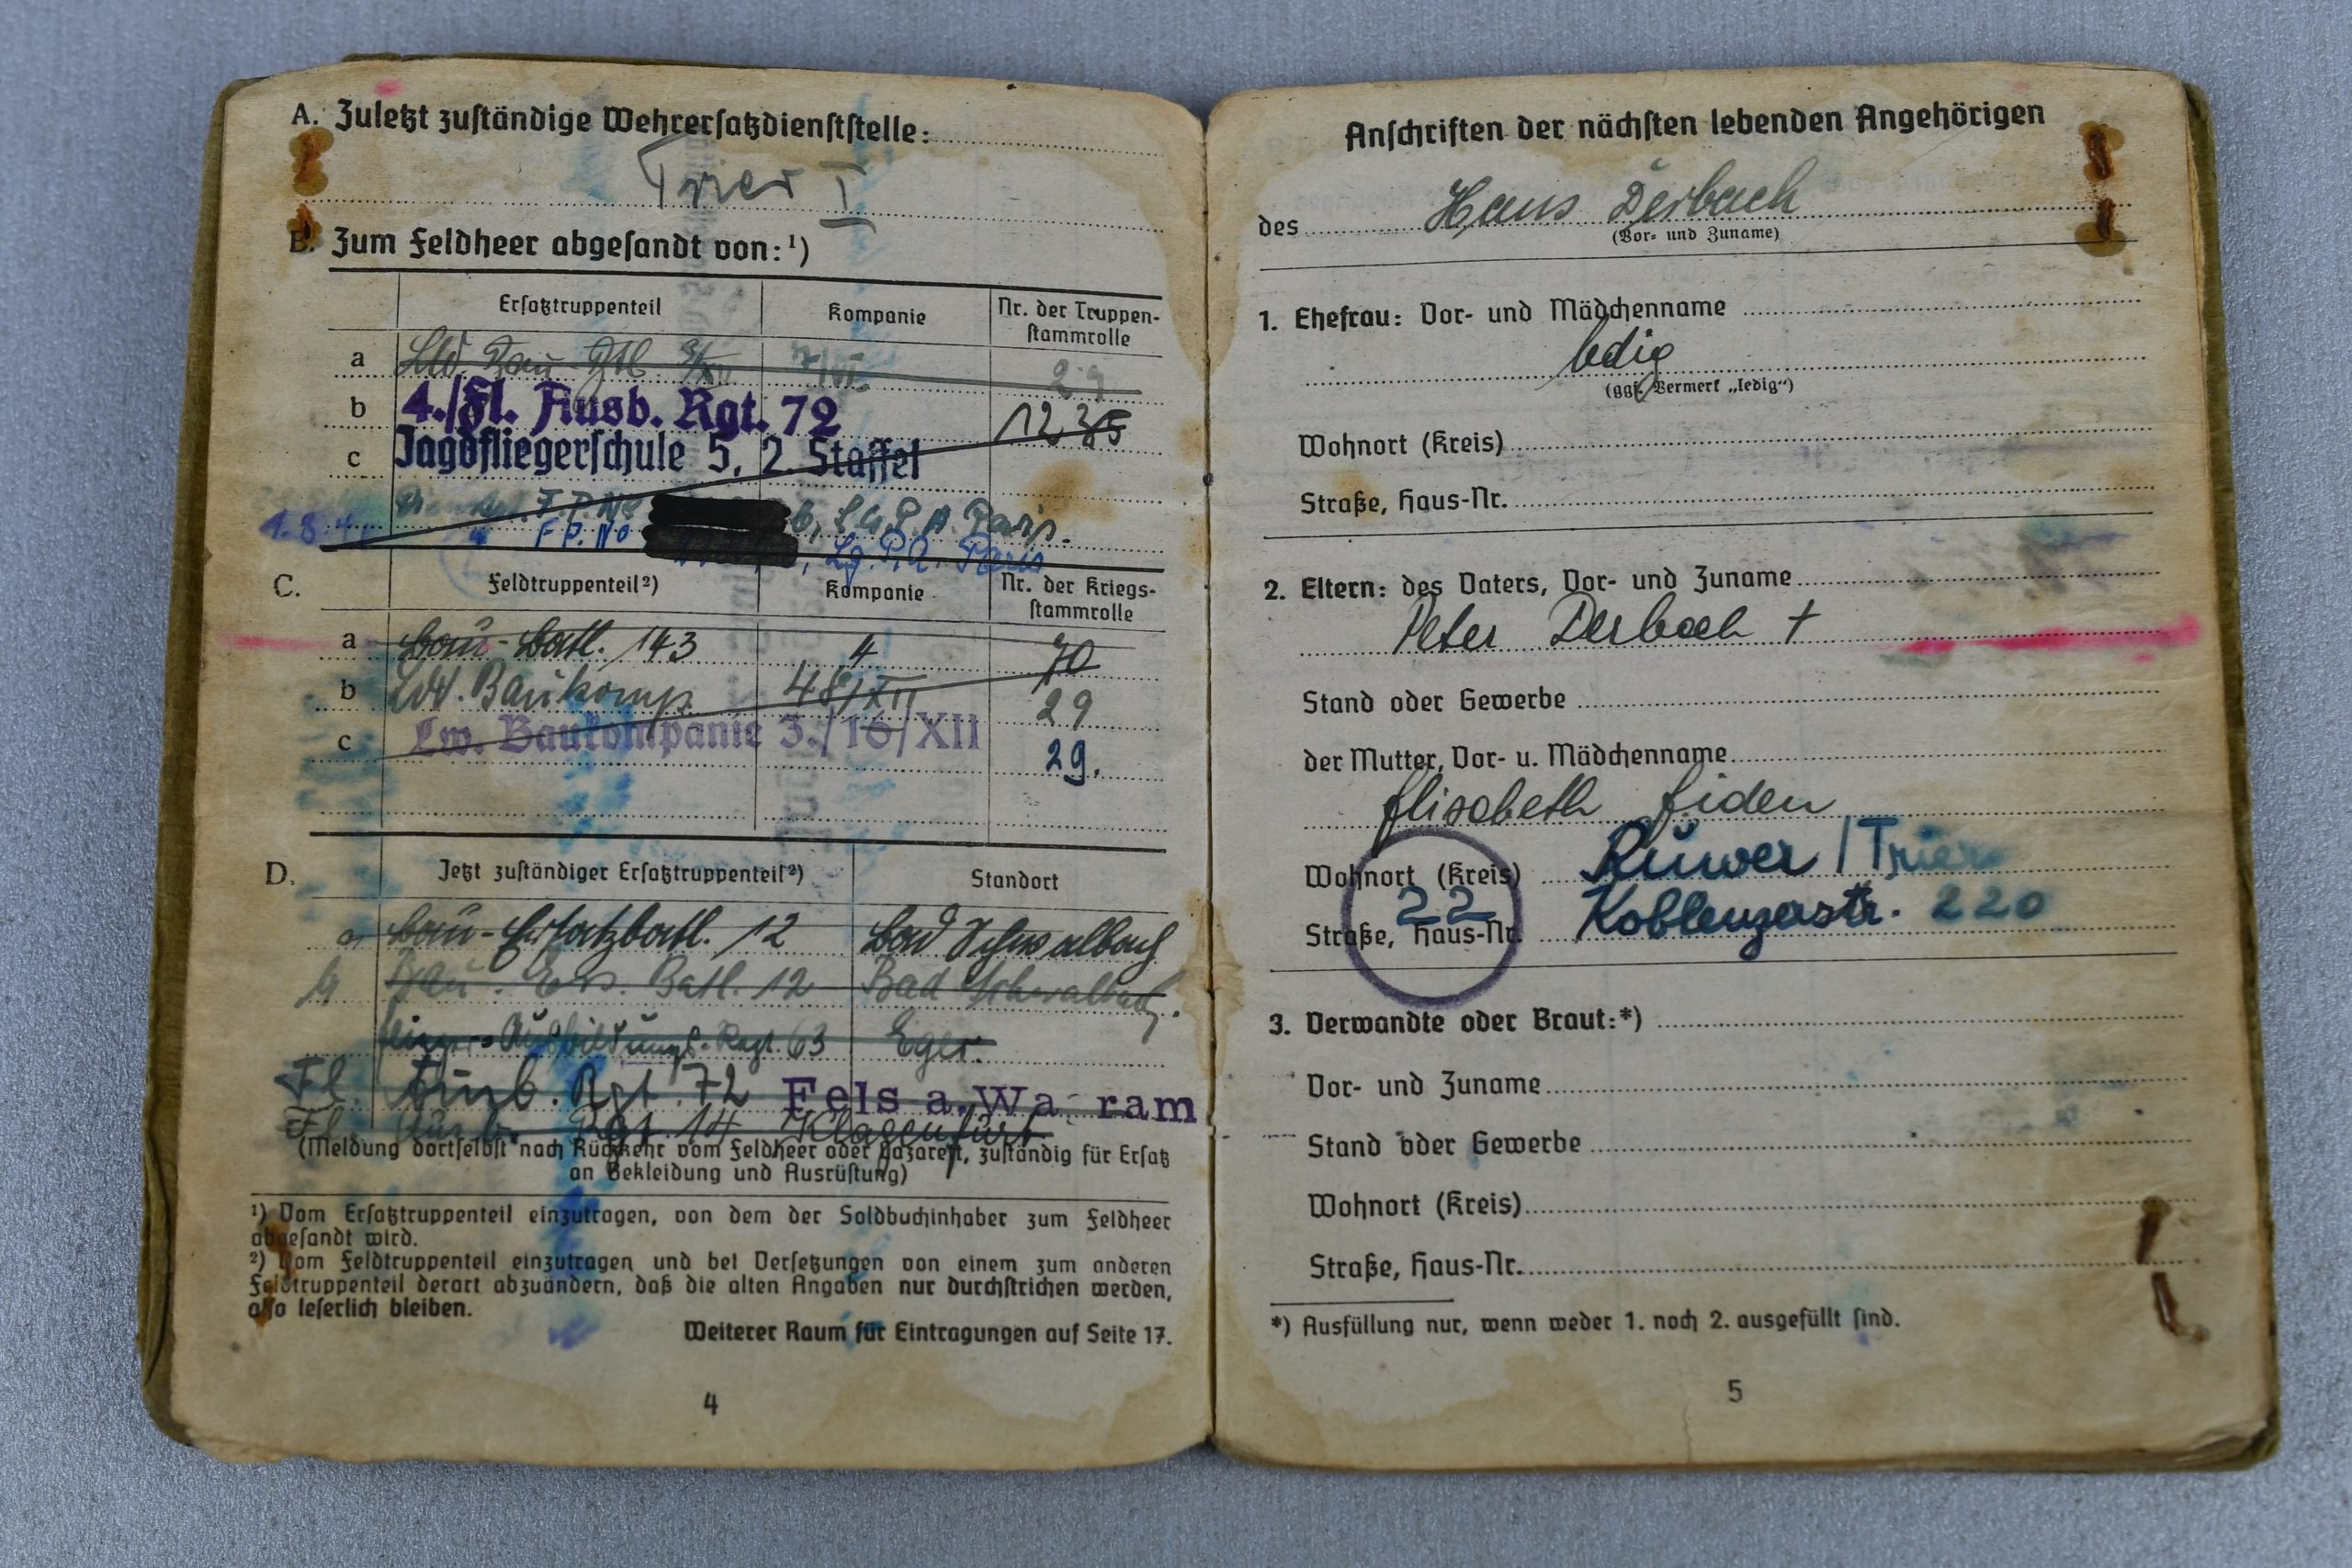 A. Zuletzt zuständige Wehrersatzdienststelle:
Trier I
B. Zum Feldheer abgesandt von:¹)
Ersatztruppenteil Kompanie Nr. der Truppen-
stammrolle
a 29
b 4./Fl. Ausb. Rgt. 72 1235
c Jagdfliegerschule 5, 2. Staffel
F.P.No L.G.P.A. Paris.
1.8.4 F.P.No , Lg.P.A. Paris
C. Feldtruppenteil²) Kompanie Nr. der Kriegs-
stammrolle
a Bau-Batl. 143 4 70
b Lw. Baukomp. 48/XII 29
c Lw. Baukompanie 3./16/XII 29.
D. Jetzt zuständiger Ersatztruppenteil²) Standort
a Bau-Ersatzbatl. 12 Bad Schwalbach
b Bau. Ers. Batl. 12 Bad Schwalbach.
Flieger-Ausbildungs-Regt. 63 Eger.
Fl. Ausb. Rgt. 72 Fels a. Wa ram
Fl. Ausb. Rgt. 14 Klagenfurt
(Meldung dortselbst nach Rückkehr vom Feldheer oder Lazarett, zuständig für Ersatz
an Bekleidung und Ausrüstung)
¹) Vom Ersatztruppenteil einzutragen, von dem der Soldbuchinhaber zum Feldheer
abgesandt wird.
²) Vom Feldtruppenteil einzutragen und bei Versetzungen von einem zum anderen
Feldtruppenteil derart abzuändern, daß die alten Angaben nur durchstrichen werden,
also leserlich bleiben.
Weiterer Raum für Eintragungen auf Seite 17.
4
Anschriften der nächsten lebenden Angehörigen
des Hans Derbach
(Vor- und Zuname)
1. Ehefrau: Vor- und Mädchenname
ledig
(ggf. Vermerk „ledig“)
Wohnort (Kreis)
Straße, Haus-Nr.
2. Eltern: des Vaters, Vor- und Zuname
Peter Derbach †
Stand oder Gewerbe
der Mutter, Vor- u. Mädchenname
Elisabeth Eiden
Wohnort (Kreis) Ruwer / Trier
22
Straße, Haus-Nr. Koblenzerstr. 220
3. Verwandte oder Braut:*)
Vor- und Zuname
Stand oder Gewerbe
Wohnort (Kreis)
Straße, Haus-Nr.
*) Ausfüllung nur, wenn weder 1. noch 2. ausgefüllt sind.
5